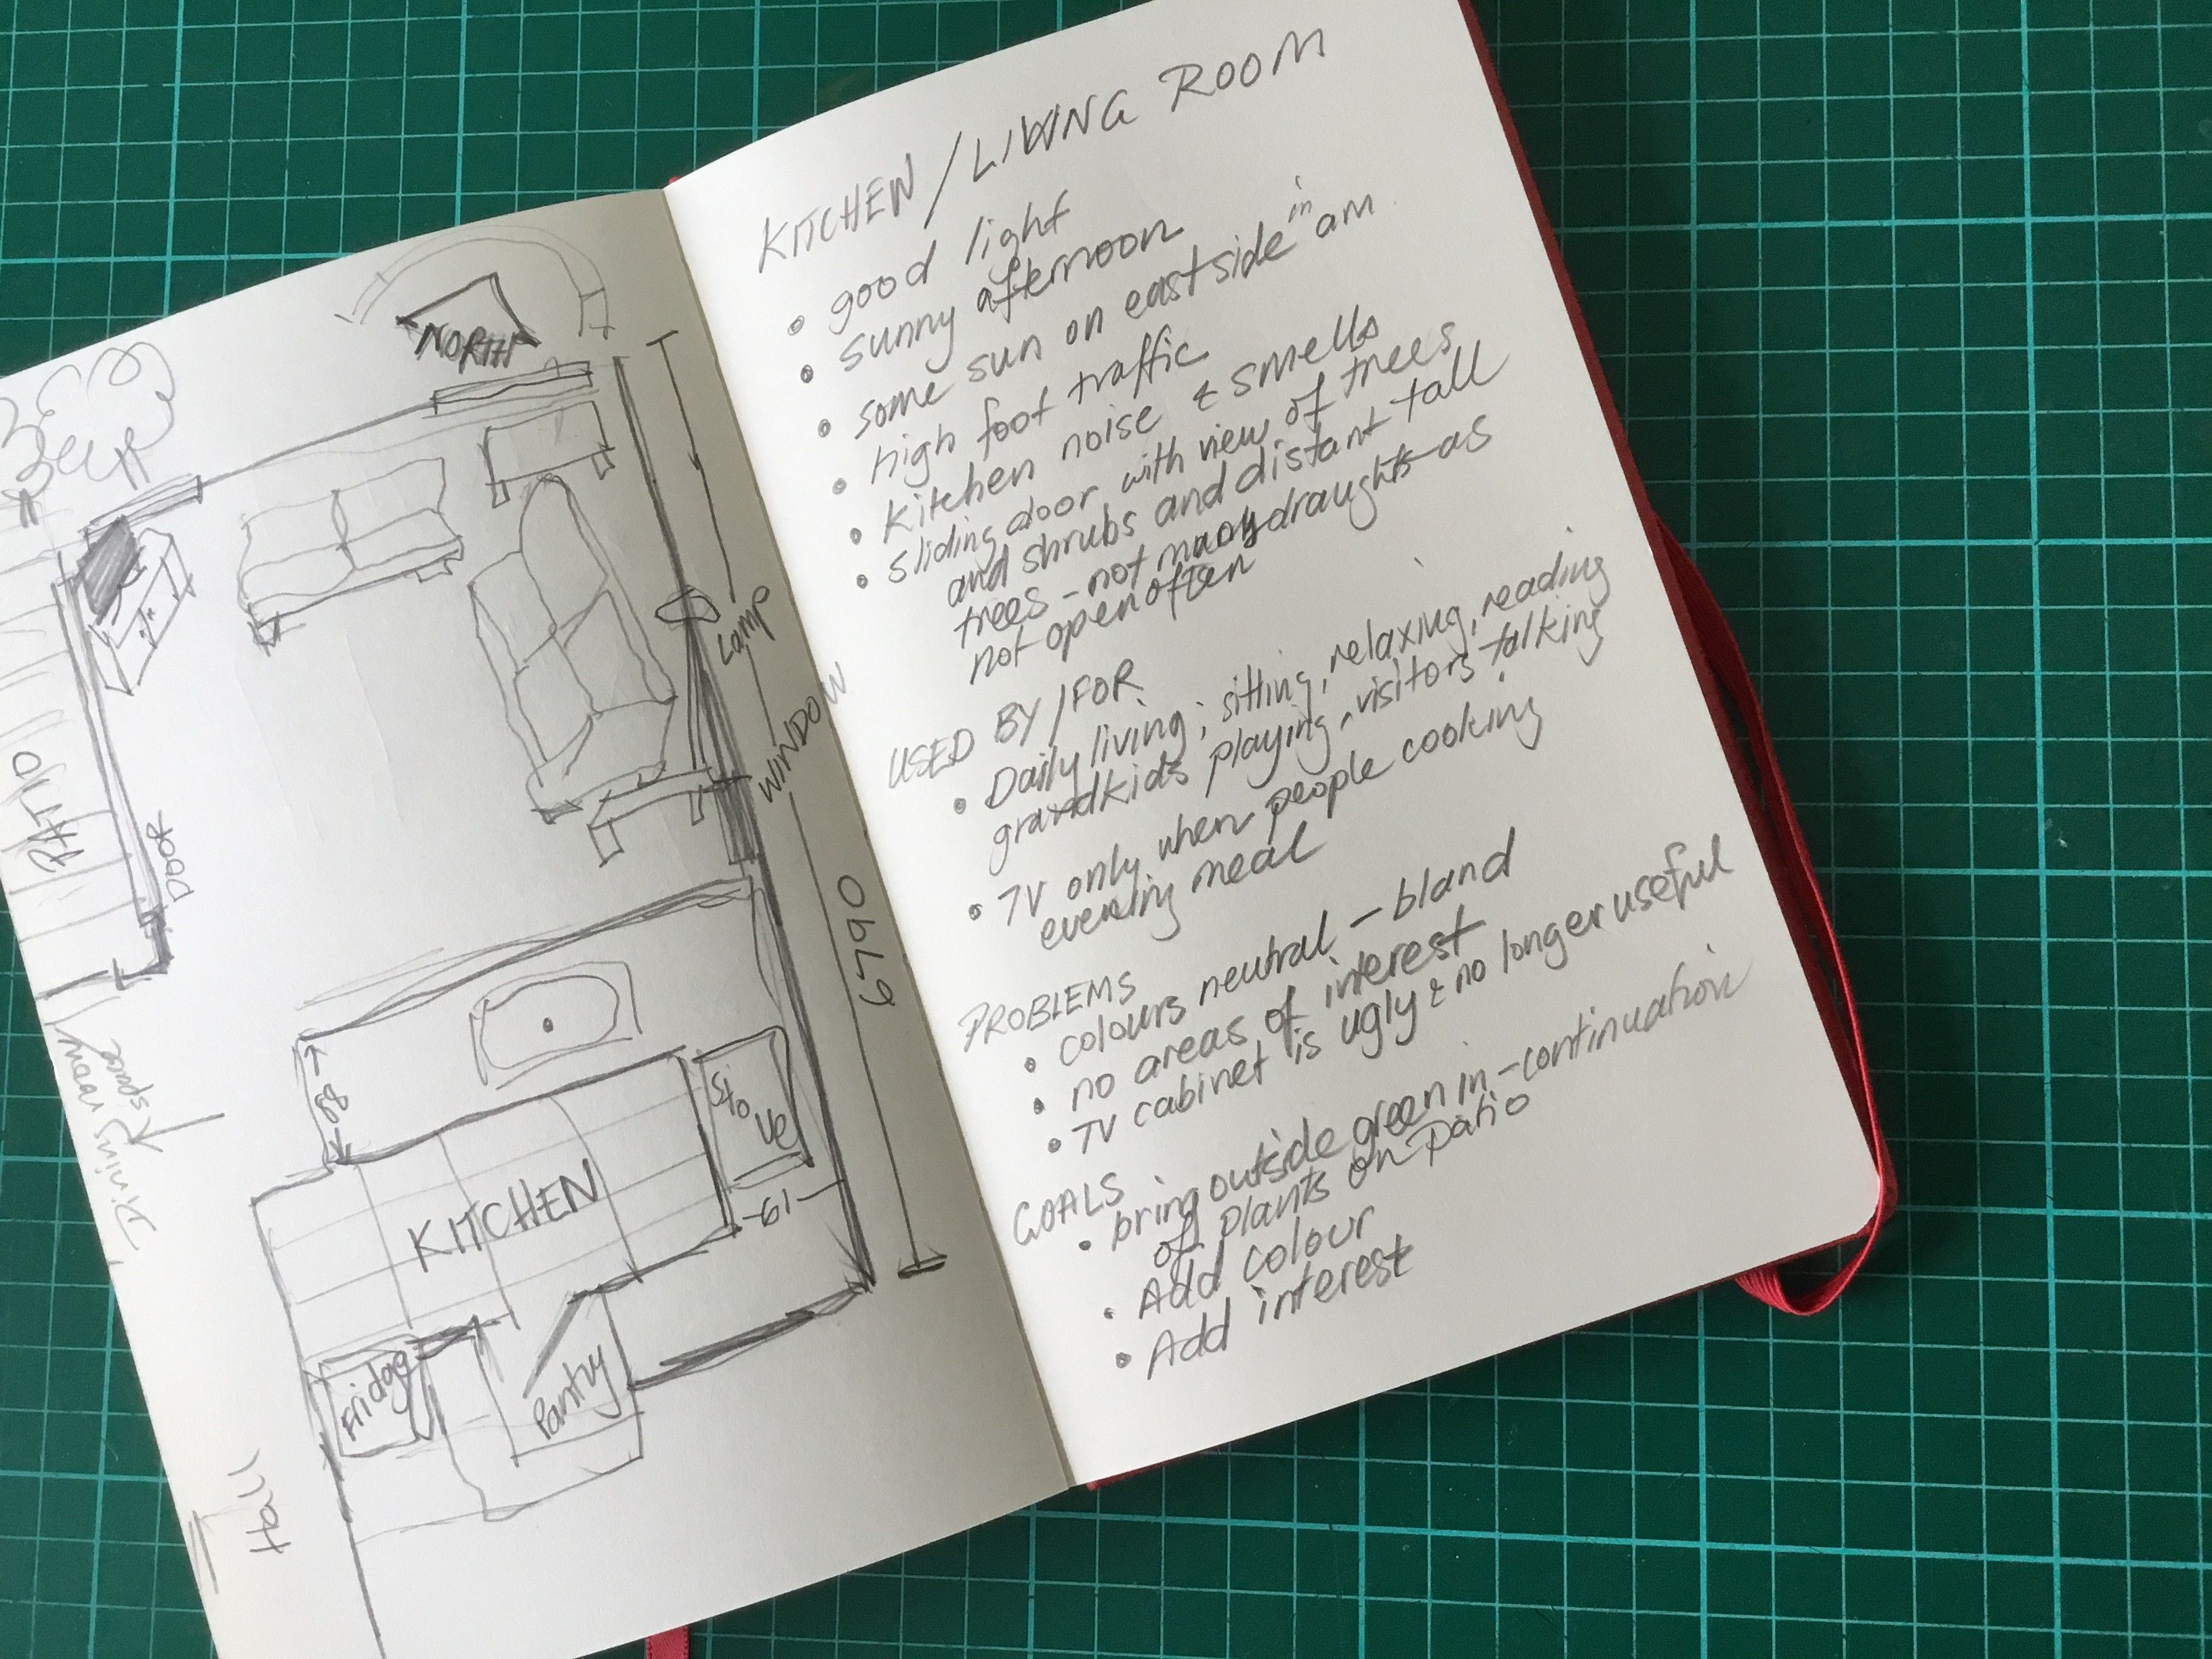 NORTH
Lamp
WINDOW
6740
PATIO
DOOR
Dining room
space
98
Stove
61
KITCHEN
Fridge
Pantry
Hall
KITCHEN / LIVING ROOM
• good light
• sunny afternoon
• some sun on east side in am
• high foot traffic
• kitchen noise & smells
• sliding door with view of trees
and shrubs and distant tall
trees - not many draughts as
not open often
USED BY / FOR
• Daily living; sitting, relaxing, reading
grandkids playing, visitors talking
• TV only when people cooking
evening meal
PROBLEMS
• colours neutral - bland
• no areas of interest
• TV cabinet is ugly & no longer useful
GOALS
• bring outside green in - continuation
of plants on patio
• Add colour
• Add interest